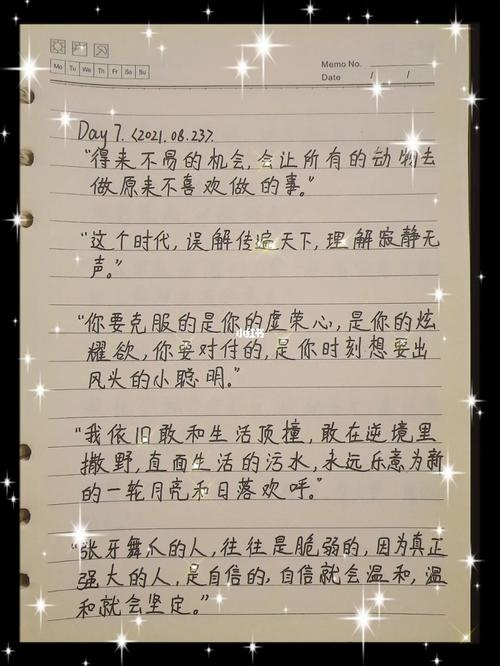 Mo Tu We Th Fr Sa Su
Memo No.
Date / /
Day 7.<2021.08.23>.
"得来不易的机会,会让所有的动物去
做原来不喜欢做的事。"
"这个时代,误解传遍天下,理解寂静无
声。"
"你要克服的是你的虚荣心,是你的炫
耀欲,你要对付的,是你时刻想要出
风头的小聪明。"
小红书
"我依旧敢和生活顶撞,敢在逆境里
撒野,直面生活的污水,永远乐意为新
的一轮月亮和日落欢呼。"
"张牙舞爪的人,往往是脆弱的,因为真正
强大的人,是自信的,自信就会温和,温
和就会坚定。"